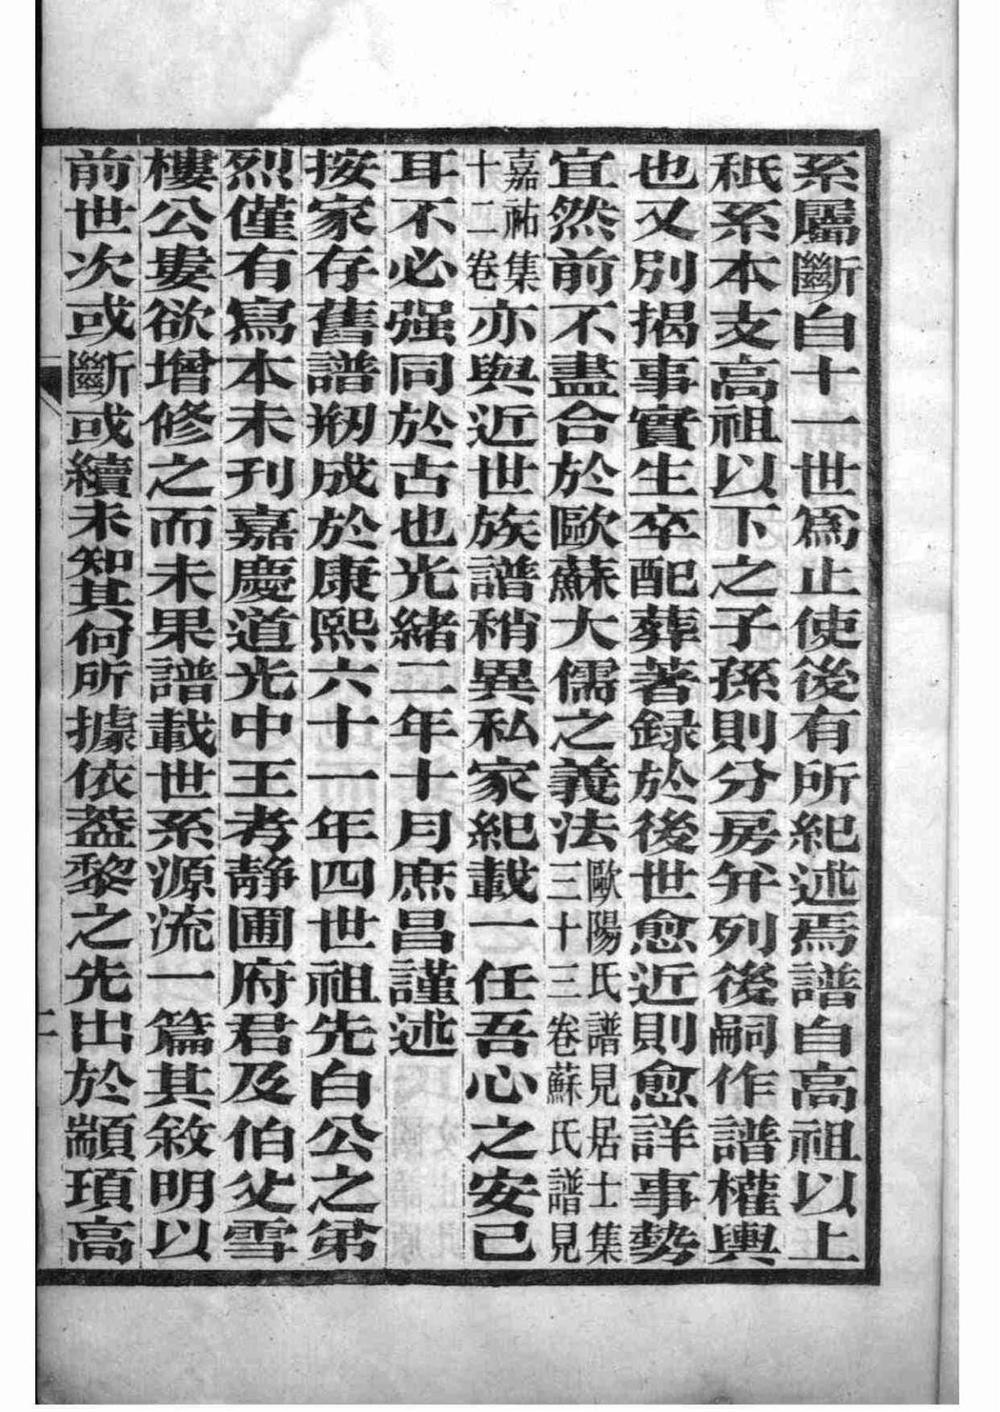 系屬斷自十一世爲止使後有所紀述焉譜自高祖以上
秖系本支高祖以下之子孫則分房分列後嗣作譜權輿
也又別揭事實生卒配葬著録於後世愈近則愈詳事勢
宜然前不盡合於歐蘇大儒之義法歐陽氏譜見居士集三十三卷蘇氏譜見
嘉祐集十二卷亦與近世族譜稍異私家紀載一任吾心之安已
耳不必强同於古也光緒二年十月庶昌謹述
按家存舊譜剏成於康熙六十一年四世祖先白公之弟
烈僅有寫本未刊嘉慶道光中王考靜圃府君及伯父雪
樓公婁欲增修之而未果譜載世系源流一篇其敘明以
前世次或斷或續未知其何所據依葢黎之先出於顓頊高